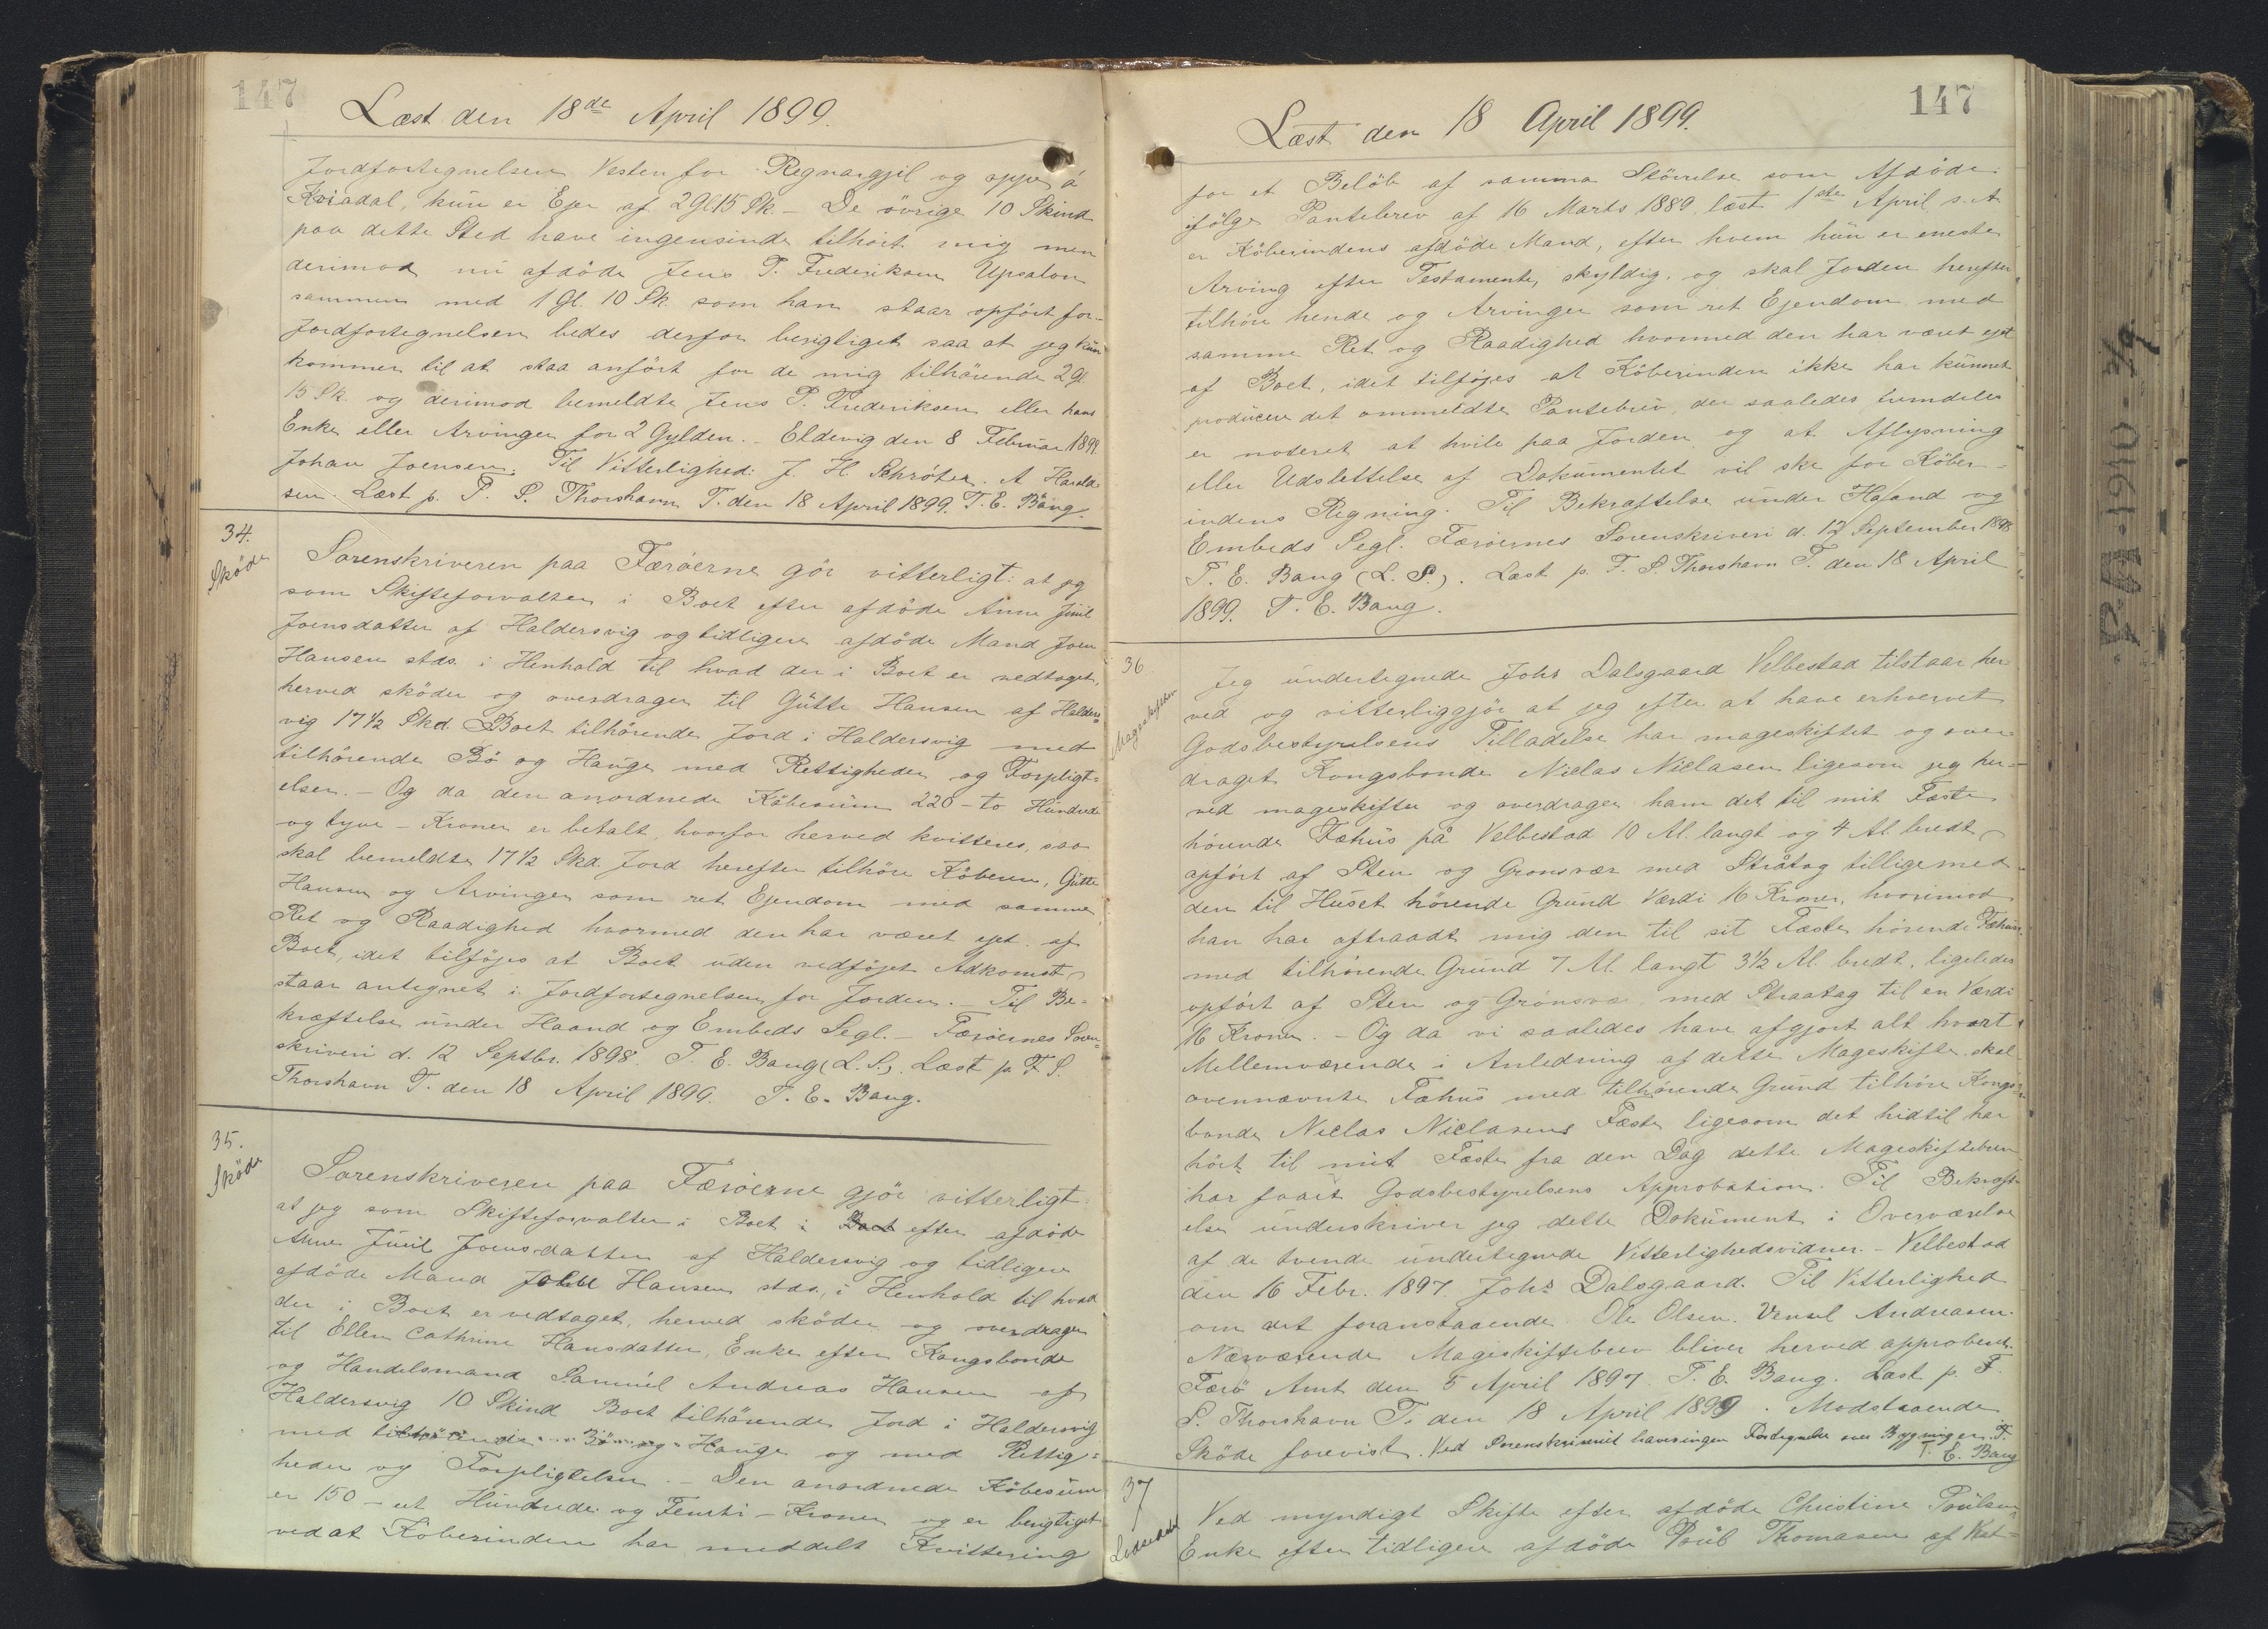 147
Læst den 18de April 1899.
Jordfortegnelsen Vesten for Regnargjil og oppe á
Kviadal, kun er Ejer af 2 Gl 15 Sk. - De övrige 10 Skind
paa dette Sted have ingensinde tilhört mig men
derimod nu afdöde Jens P. Frederiksen Upsalon
sammen med 1 Gl. 10 Sk. som han staar opfört for.
Jordfortegnelsen bedes derfor berigtiget saa at jeg kun
kommer til at staa anfört for de mig tilhörende 2 Gl.
15 Sk. og derimod bemeldte Jens P. Frederiksen eller hans
Enke eller Arvinger for 2 Gylden. - Eldevig den 8 Februar 1899.
Johan Joensen. Til Vitterlighed: J. H. Schröter. A Harald-
sen. Læst p. F. S. Thorshavn T. den 18 April 1899. T. E. Bang.
34.
Sköde
Sorenskriveren paa Færöerne gör vitterligt: at jeg
som Skifteforvalter i Boet efter afdöde Anne Juul
Joensdatter af Haldersvig og tidligere afdöde Mand Joen
Hansen stds. i Henhold til hvad der i Boet er vedtaget,
herved sköder og overdrager til Gutte Hansen af Halders=
vig 17 1/2 Skd. Boet tilhörende Jord i Haldersvig med
tilhörende Bö og Hauge med Rettigheder og Forpligt=
elser. - Og da den anordnede Köbesum 220 - to Hundrede
og tyve - Kroner er betalt, hvorfor herved kvitteres, saa
skal bemeldte 17 1/2 Skd. Jord herefter tilhöre Köberen, Gutte
Hansen og Arvinger som ret Ejendom med samme
Ret og Raadighed hvormed den har været ejet af
Boet, idet tilföjes at Boet uden vedföjet Adkomst
staar antegnet i Jordfortegnelsen for Jorden. - Til Be=
kræftelse under Haand og Embeds Segl. - Færöernes Soren-
skriveri d. 12 Septbr. 1898. T. E. Bang (L. S.). Læst p. F. S.
Thorshavn T. den 18 April 1899. T. E. Bang.
35.
Sköde
Sorenskriveren paa Færöerne gjör vitterligt:
at jeg som Skifteforvalter i Boet i Boet efter afdöde
Anne Juul Joensdatter af Haldersvig og tidligere
afdöde Mand Hansen stds., i Henhold til hvad
der i Boet er vedtaget, herved sköder og overdrager
til Ellen Cathrine Hansdatter, Enke efter Kongsbonde
og Handelsmand Samuel Andreas Hansen af
Haldersvig 10 Skind Boet tilhörende Jord i Haldersvig
med tilhörende Bö og Hauge og med Rettig=
heder og Forpligtelser. - Den anordnede Köbesum
er 150 - et Hundrede og Femti - Kroner og er berigtiget
ved at Köberinden har meddelt Kvittering
147
Læst den 18 April 1899.
for et Belöb af samme Störrelse som Afdöde
ifölge Pantebrev af 16 Marts 1889, læst 1ste April s. A.
er Köberindens afdöde Mand, efter hvem hun er eneste
Arving efter Testamente, skyldig, og skal Jorden herefter
tilhöre hende og Arvinger som ret Ejendom med
samme Ret og Raadighed hvormed den har været ejet
af Boet, idet tilföjes at Köberinden ikke har kunnet
producere det ommeldte Pantebrev, der saaledes fremdeles
er noteret at hvile paa Jorden og at Aflysning
eller Udslettelse af Dokumentet vil ske for Köber=
indens Regning. Til Bekræftelse under Haand og
Embeds Segl. Færöernes Sorenskriveri d. 12 September 1898
T. E. Bang (L. S.). Læst p. F. S. Thorshavn T. den 18 April
1899. T. E. Bang.
36
Mageskiftebrev
Jeg undertegnede Johs Dalsgaard Velbestad tilstaar her
ved og vitterliggjör at jeg efter at have erhvervet
Godsbestyrelsens Tilladelse har mageskiftet og over
draget Kongsbonde Niclas Niclasen ligesom jeg her=
ved mageskifter og overdrager ham det til mit Fæste
hörende Fæhus på Velbestad 10 Al. langt og 4 Al. bredt,
opfört af Sten og Gronsvær med Stråtag tilligemed
den til Huset hörende Grund Værdi 16 Kroner, hvorimod
han har aftraadt mig den til sit Fæste hörende Fæhus
med tilhörende Grund 7 Al. langt 3 1/2 Al. bredt, ligeledes
opfört af Sten og Grönsvær med Straatag til en Værdi
16 Kroner. - Og da vi saaledes have afgjort alt hvert
Mellemværende i Anledning af dette Mageskifte, skal
ovennævnte Fæhus med tilhörende Grund tilhöre Kongs=
bonde Niclas Niclasens Fæste ligesom det hidtil har
hört til mit Fæste fra den Dag dette Mageskiftebrev
har faaet Godsbestyrelsens Approbation. Til Bekræft-
else underskriver jeg dette Dokument i Overværelse
af de tvende undertegnede Vitterlighedsvidner. - Velbestad
den 16 Febr. 1897. Johs Dalsgaard. Til Vitterlighed
om det foranstaaende. Ole Olsen. Vensel Andreasen.
Nærværende Mageskiftebrev bliver herved approberet.
Færö Amt den 5 April 1897. T. E. Bang. Læst p. F.
S. Thorshavn T. den 18 April 1899. Modstaaende
Sköde forevist. Ved Sorenskriveriet haves ingen Fortegnelse over Bygninger. T.
T. E. Bang
37
Ved myndigt Skifte efter afdöde Christine Poulsen
Enke efter tidligere afdöde Poul Thomasen af Kvt=